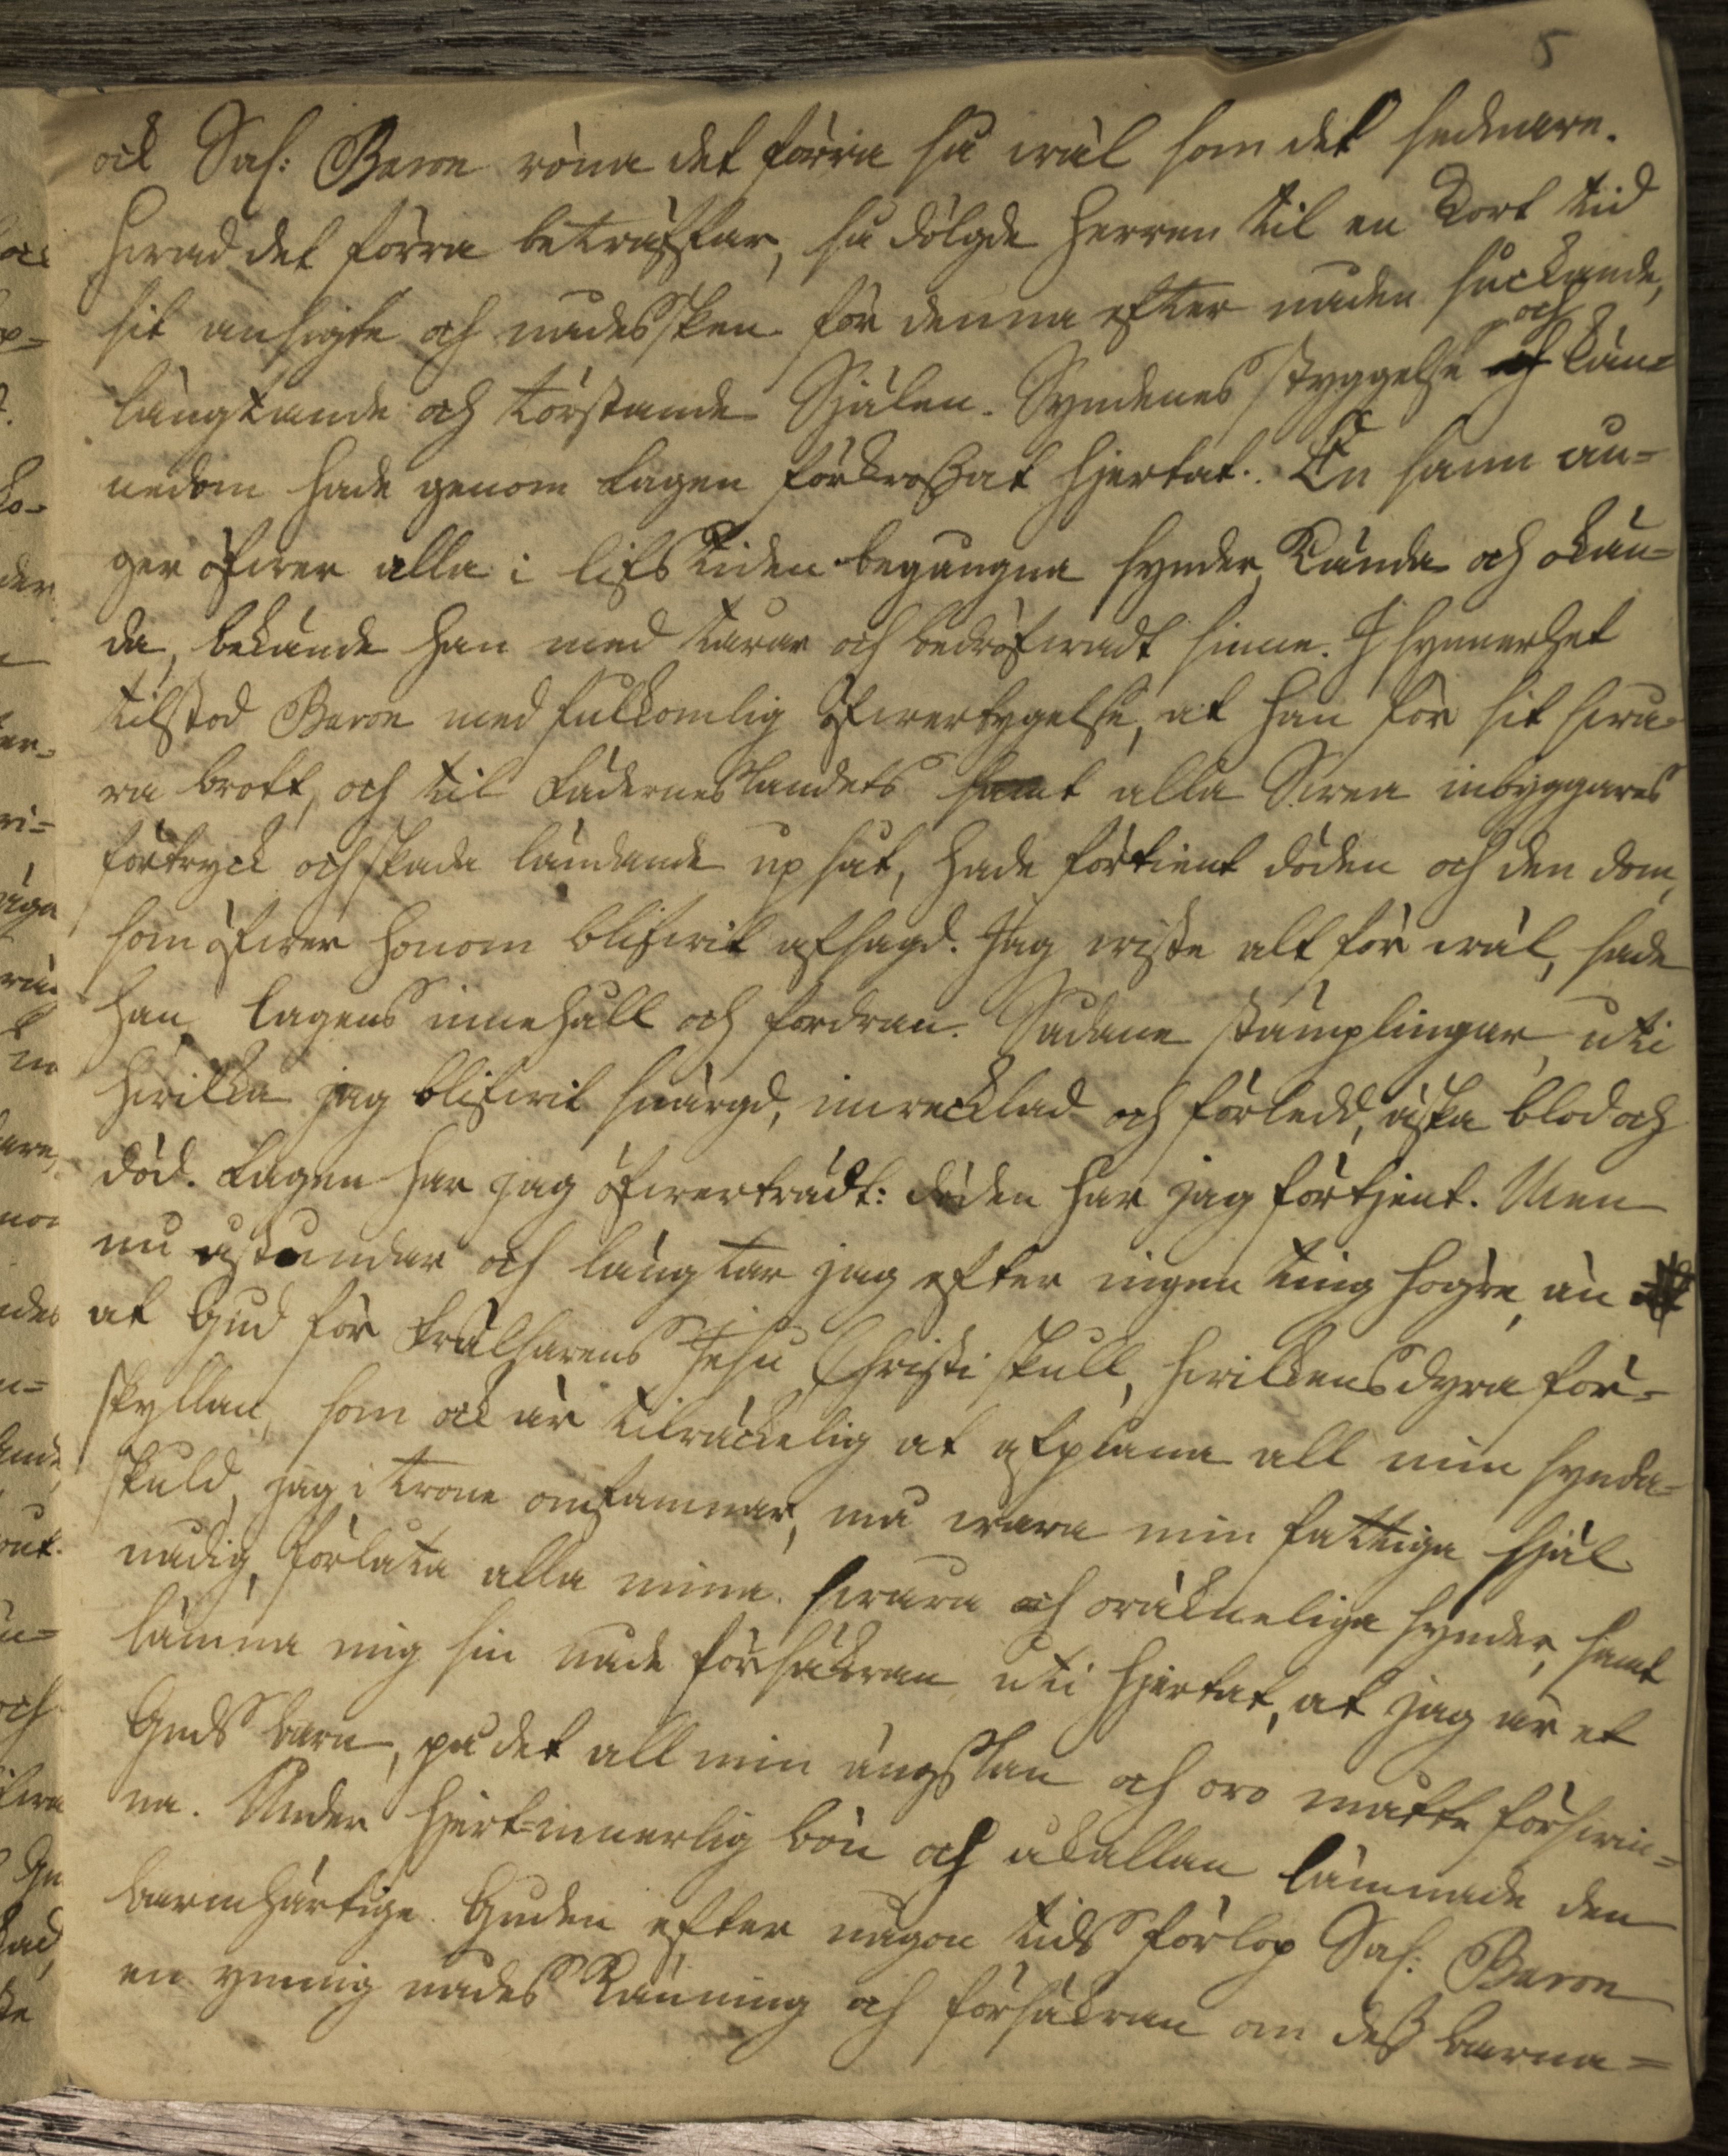 5
ock Sal: Baron röna det förra så wäl som det sednare.
Hwad det förra beträffar, så dölgde Herren til en kort tid
sit ansigte och nådesSken för denna efter nåden suckande,
längtande och törstande Själen. Syndenes styggelse och kän=
nedom hade genom lagen förkrossat hjertat. En sann ån=
ger öfwer alla i lifsTiden begångna synder, kända och okän=
da, bekände han med tårar och bedröfwadt sinne. I synnerhet
tilstod Baron med fulkomlig öfwertygelse, at han för sit swå=
ra brott, och til Fäderneslandets samt alla Swea inbyggares
förtryck och skada ländande upsåt, hade förtient döden och den dom,
som öfwer honom blifwit afsagd. Jag wiste alt för wäl, sade
han, lagens innehåll och fordran. Sådane stämplingar, uti
hwilka jag blifwit snärgd, inwecklad och förledd, äska blod och
död. Lagen har jag öfwerträdt: döden har jag förtjent. Men
nu åstundar och längtar jag efter ingen ting högre, än
at Gud för Frälsarens Jesu Christi skull, hwilkens dyra för=
skyllan, som ock är tilräckelig at afplana all min synda=
skuld, jag i trone omfamnar, må wara min fattiga själ
nådig, förlåta alla mina swåra och oräkneliga synder, samt
lämna mig sin nåde försäkran uti hjertat, at jag är et
Guds barn, på det all min ängslan och oro måtte förswin=
na. Under hjert=innerlig bön och åkallan lämnade den
barmhärtige Guden efter någon tids förlop Sal: Baron
en ymnig nådes känning och försäkran om dess barna=